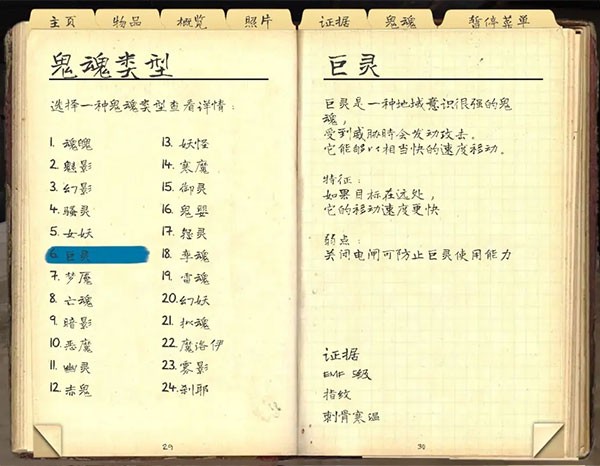 主页 物品 概览 照片 证据 鬼魂 暂停菜单
鬼魂类型
选择一种鬼魂类型查看详情：
1. 魂魄
2. 魅影
3. 幻影
4. 骚灵
5. 女妖
6. 巨灵
7. 梦魇
8. 亡魂
9. 暗影
10. 恶魔
11. 幽灵
12. 赤鬼
13. 妖怪
14. 寒魔
15. 御灵
16. 鬼婴
17. 怨灵
18. 孪魂
19. 雷魂
20. 幻妖
21. 拟魂
22. 魔洛伊
23. 雾影
24. 刹耶
29
巨灵
巨灵是一种地域意识很强的鬼
魂，
受到威胁时会发动攻击。
它能够以相当快的速度移动。
特征：
如果目标在远处，
它的移动速度更快
弱点：
关闭电闸可防止巨灵使用能力
证据
EMF 5级
指纹
刺骨寒温
30